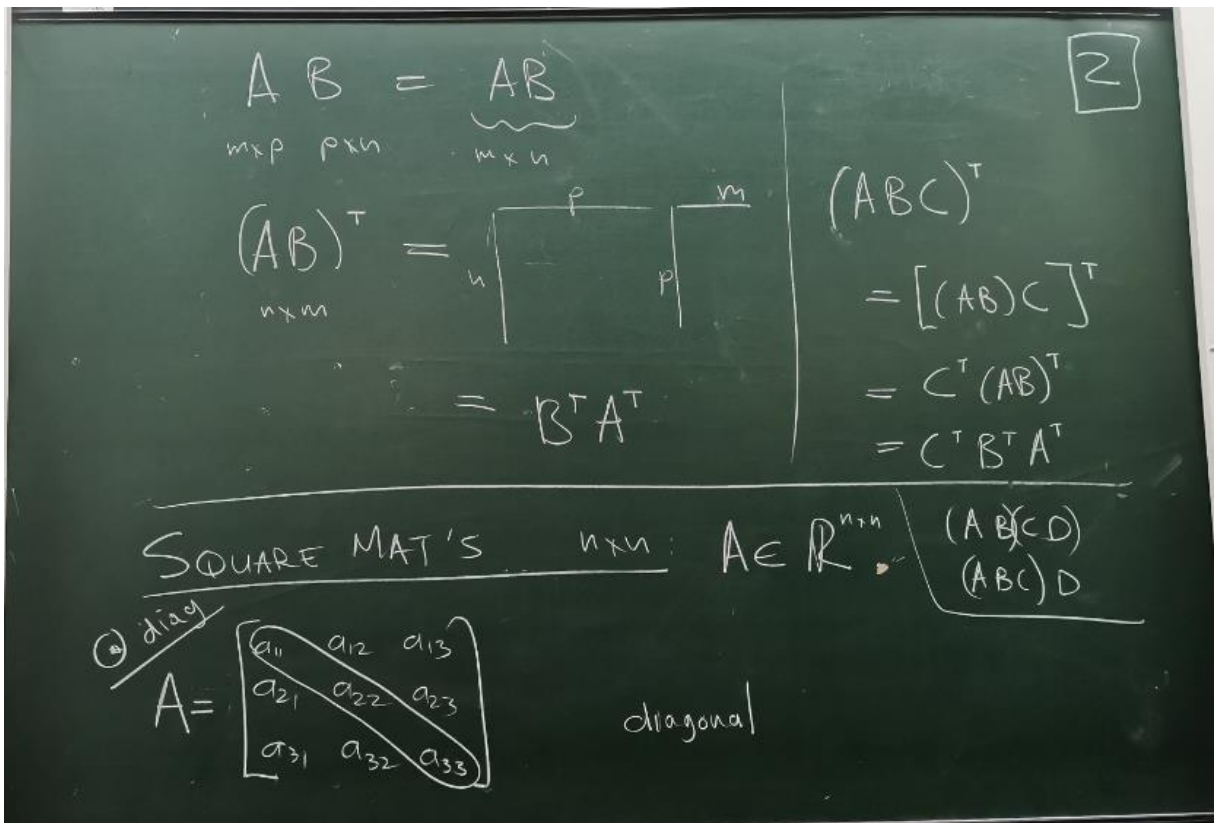 2
A B = AB
m×p p×n m×n
(AB)ᵀ = n p p m
n×m
= BᵀAᵀ
(ABC)ᵀ
= [(AB)C]ᵀ
= Cᵀ(AB)ᵀ
= CᵀBᵀAᵀ
(AB)(CD)
(ABC)D
SQUARE MAT'S n×n: A∈ℝⁿˣⁿ.
diag
A= [a₁₁ a₁₂ a₁₃
a₂₁ a₂₂ a₂₃
a₃₁ a₃₂ a₃₃]
diagonal